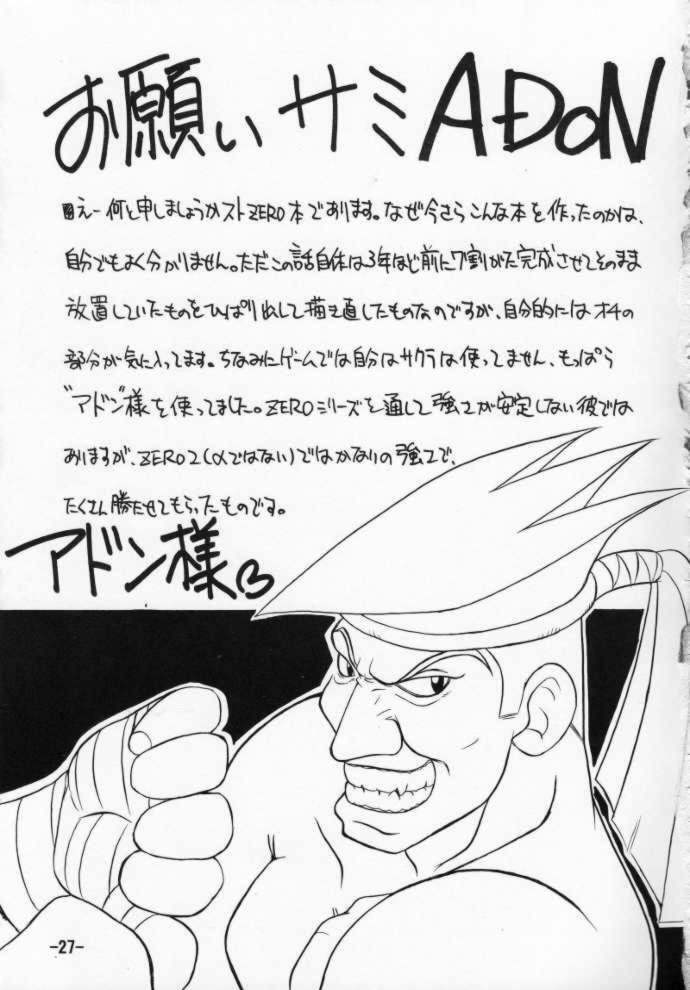 お願いサミADON
■えー何と申しましょうかストZERO本であります。なぜ今さらこんな本を作ったのかは、
自分でもよく分かりません。ただこの話自体は3年ほど前に7割がた完成させてそのまま
放置していたものをひっぱり出して描き直したものなのですが、自分的にはオチの
部分が気に入ってます。ちなみにゲームでは自分はサクラは使ってません、もっぱら
"アドン"様を使ってました。ZEROシリーズを通して強さが安定しない彼では
ありますが、ZERO2(αではない)ではかなりの強さで、
たくさん勝たせてもらったものです。
アドン様
-27-